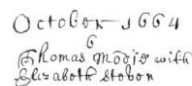 October 1664
6
Thomas Modis with
Elizabeth Stobon